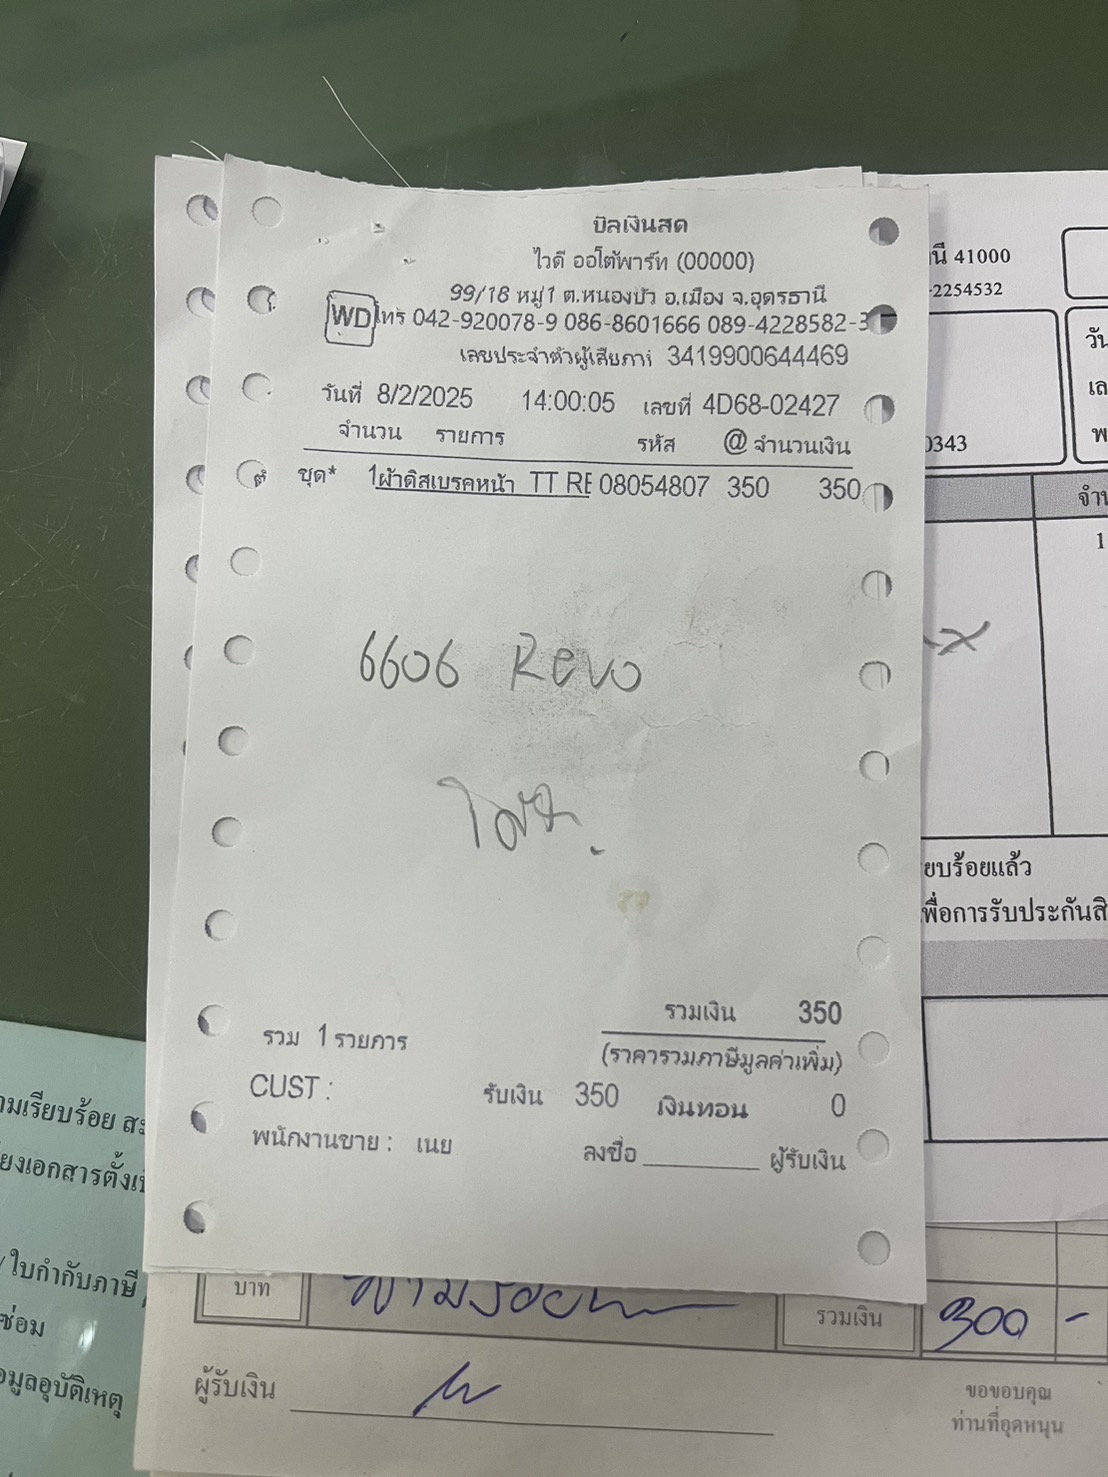 บิลเงินสด
ไวดี ออโต้พาร์ท (00000)
99/18 หมู่1 ต.หนองบัว อ.เมือง จ.อุดรธานี
WD
โทร 042-920078-9 086-8601666 089-4228582-3
เลขประจำตัวผู้เสียภาษี 3419900644469
วันที่ 8/2/2025 14:00:05 เลขที่ 4D68-02427
จำนวน รายการ รหัส @ จำนวนเงิน
ชุด* 1ผ้าดิสเบรคหน้า TT RE 08054807 350 350
6606 Revo
รวมเงิน 350
รวม 1 รายการ
(ราคารวมภาษีมูลค่าเพิ่ม)
CUST :
รับเงิน 350 เงินทอน 0
พนักงานขาย : เนย
ลงชื่อ ผู้รับเงิน
นี 41000
-2254532
วัน
เล
0343
พ
จำน
1
ยบร้อยแล้ว
พื่อการรับประกันสิ
ามเรียบร้อย สะ
ยงเอกสารตั้งเ
/ ใบกำกับภาษี
ซ่อม
อมูลอุบัติเหตุ
บาท
สามร้อย
รวมเงิน
300 -
ผู้รับเงิน
ขอขอบคุณ
ท่านที่อุดหนุน